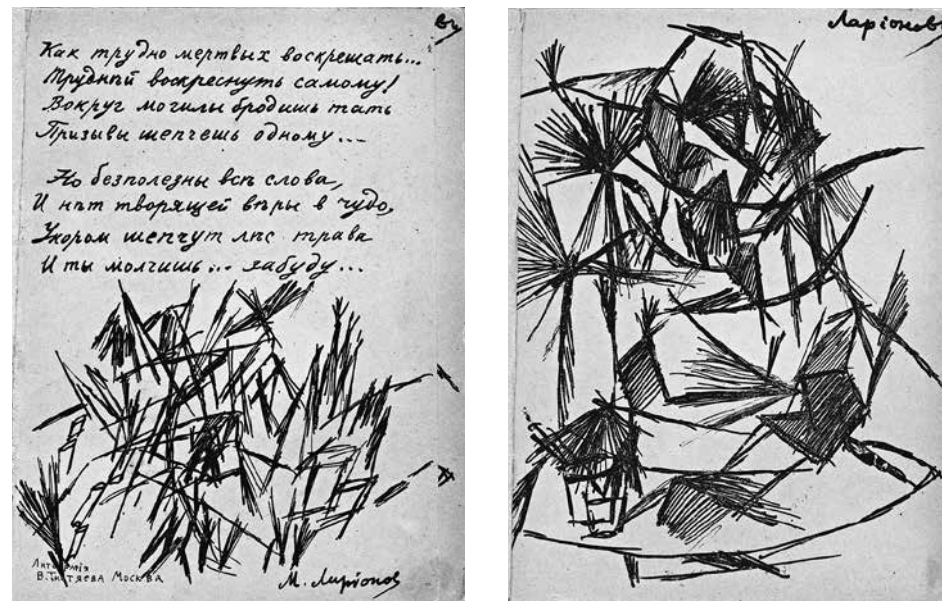 Как трудно мертвых воскрешать...
Трудней воскреснуть самому!
Вокруг могилы бродишь тать
Призывы шепчешь одному...
Но безполезны всѣ слова,
И нѣт творящей вѣры в чудо,
Укором шепчут лѣс трава
И ты молчишь... забуду...
В. Титяева Москва
М. Ларіонов
Ларіонов